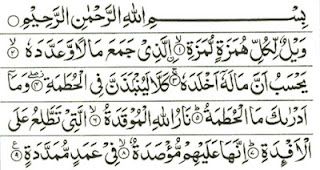 بِسْمِ اللهِ الرَّحْمٰنِ الرَّحِيْمِ ○
وَيْلٌ لِّكُلِّ هُمَزَةٍ لُّمَزَةِ ۙ﴿١﴾ الَّذِيْ جَمَعَ مَالًا وَّعَدَّدَهٗ ۙ﴿٢﴾
يَحْسَبُ اَنَّ مَالَهٗۤ اَخْلَدَهٗ ۚ﴿٣﴾ كَلَّا لَيُنْۢبَذَنَّ فِي الْحُطَمَةِ ۖ﴿٤﴾ وَمَاۤ
اَدْرٰىكَ مَا الْحُطَمَةُ ؕ﴿٥﴾ نَارُ اللهِ الْمُوْقَدَةُ ۙ﴿٦﴾ الَّتِيْ تَطَّلِعُ عَلَى
الْاَفْـِٕدَةِ ؕ﴿٧﴾ اِنَّهَا عَلَيْهِمْ مُّؤْصَدَةٌ ۙ﴿٨﴾ فِيْ عَمَدٍ مُّمَدَّدَةٍ ﴿٩﴾